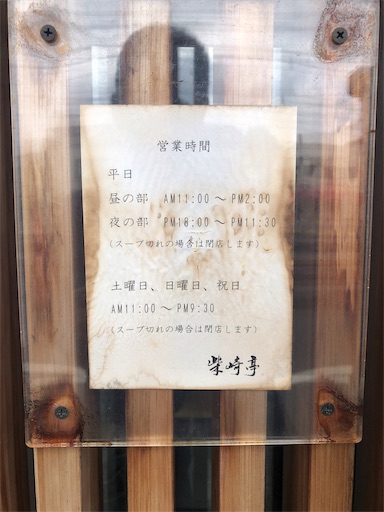 営業時間
平日
昼の部 AM11:00～PM2:00
夜の部 PM18:00～PM11:30
(スープ切れの場合は閉店します)
土曜日、日曜日、祝日
AM11:00～PM9:30
(スープ切れの場合は閉店します)
柴崎亭